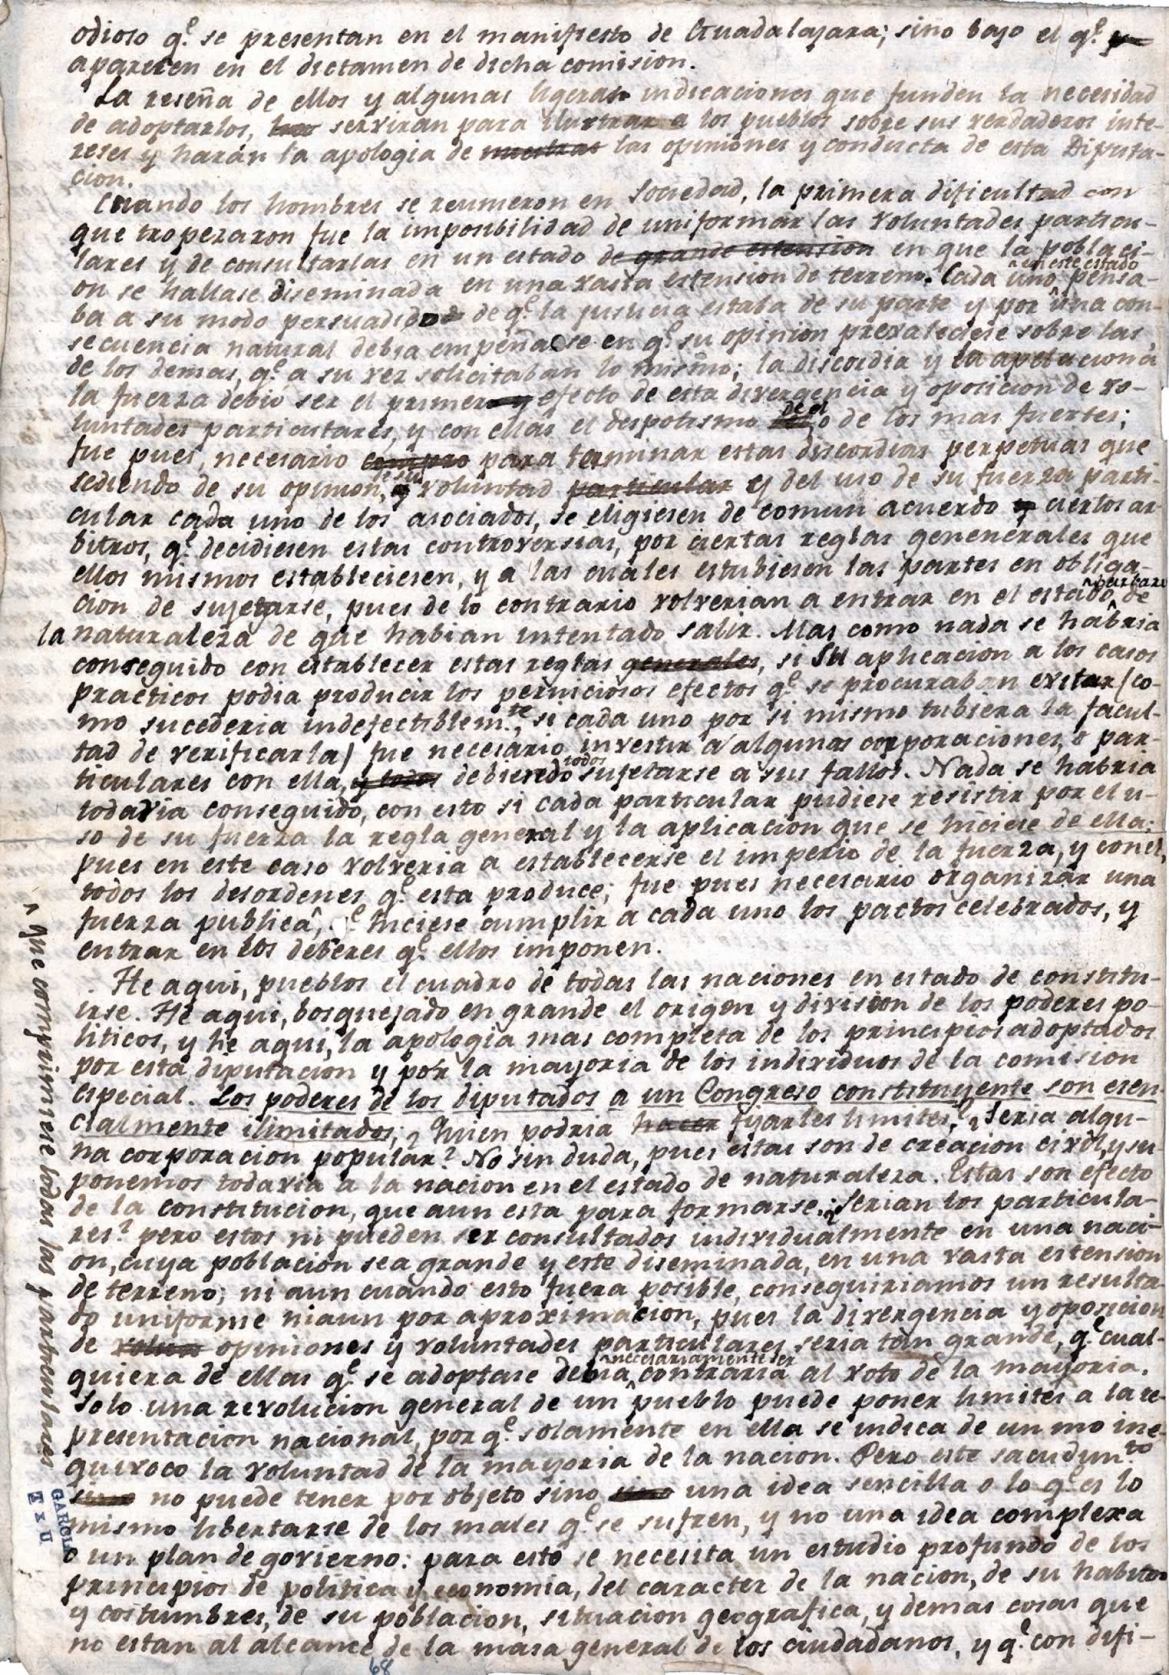 odioso q.e se presentan en el manifiesto de Guadalajara; sino bajo el q.e
aparecen en el dictamen de dicha comision.
La reseña de ellos y algunas ligeras indicaciones que funden la necesidad
de adoptarlos, serviran para ilustrar a los pueblos sobre sus verdaderos inte-
reses y harán la apologia de nuestras las opiniones y conducta de esta Diputa-
cion.
Cuando los hombres se reunieron en sociedad, la primera dificultad con
que tropezaron fue la imposibilidad de uniformar las voluntades particu-
lares y de consultarlas en un estado de grande estension en que la poblaci-
on se hallase diseminada en una vasta estension de terreno. Cada uno ^en este estado pensa-
ba a su modo persuadido de q.e la justicia estaba de su parte y por una con-
secuencia natural debia empeñarse en q.e su opinion prevaleciese sobre las
de los demas, q.e a su vez solicitaban lo mismo; la discordia y la apelacion a
la fuerza debio ser el primer efecto de esta divergencia y oposicion de vo-
luntades particulares, y con ellas el despotismo de el o de los mas fuertes;
fue pues, necesario para terminar estas discordias perpetuas que
sediendo de su opinion, voluntad particular y del uso de su fuerza parti-
cular cada uno de los asociados, se eligiesen de comun acuerdo ciertos ar-
bitros, q.e decidiesen estas controversias, por ciertas reglas genenerales que
ellos mismos estableciesen, y a las cuales estubiesen las partes en obliga-
cion de sujetarse, pues de lo contrario volverian a entrar en el estado ^barbaro de
la naturaleza de que habian intentado salir. Mas como nada se habria
conseguido con establecer estas reglas generales, si su aplicacion a los casos
practicos podia producir los perniciosos efectos q.e se procuraban evitar (co-
mo sucederia indefectiblem.te si cada uno por si mismo tubiera la facul-
tad de verificarla) fue necesario investir a algunas corporaciones, o par-
ticulares con ella, y todos debiendo ^todos sujetarse a sus fallos. Nada se habria
todavia conseguido, con esto si cada particular pudiese resistir por el u-
so de su fuerza la regla general y la aplicacion que se hiciese de ella;
pues en este caso volveria a establecerse el imperio de la fuerza, y con el,
todos los desordenes q.e esta produce; fue pues necesario organizar una
fuerza publica^, q.e hiciese cumplir a cada uno los pactos celebrados, y
entrar en los deberes q.e ellos imponen.
^ que comprimiese todas las particulares
He aqui, pueblos el cuadro de todas las naciones en estado de constitu-
irse. He aqui, bosquejado en grande el origen y division de los poderes po-
liticos, y he aqui, la apologia mas completa de los principios adoptados
por esta diputacion y por la mayoria de los individuos de la comision
especial. Los poderes de los diputados a un Congreso constituyente son esen-
cialmente ilimitados; ¿Quien podria hacer fijarles limites? ¿Seria algu-
na corporacion popular? No sin duda, pues estas son de creacion civil, y su-
ponemos todavia a la nacion en el estado de naturaleza. Estas son efecto
de la constitucion, que aun esta para formarse. ¿Serian los particula-
res? pero estos ni pueden ser consultados individualmente en una naci-
on, cuya poblacion sea grande y este diseminada, en una vasta estension
de terreno; ni aun cuando esto fuera posible, conseguiriamos un resulta-
do uniforme ni aun por aproximacion, pues la divergencia y oposicion
de opiniones y voluntades particulares seria tan grande, q.e cual-
quiera de ellas q.e se adoptase debia ^necesariamente ser contraria al voto de la mayoria.
Solo una revolucion general de un pueblo puede poner limites a la re-
presentacion nacional, por q.e solamente en ella se indica de un mo ine-
quivoco la voluntad de la mayoria de la nacion. Pero este sacudim.to
no puede tener por objeto sino una idea sencilla o lo q.e es lo
mismo libertarse de los males q.e se sufren, y no una idea complexa
o un plan de govierno: para esto se necesita un estudio profundo de los
principios de politica y economia, del caracter de la nacion, de su habitos
y costumbres, de su poblacion, situacion geografica, y demas cosas que
no estan al alcance de la masa general de los ciudadanos, y q.e con difi-
GARCIA
T X U
68